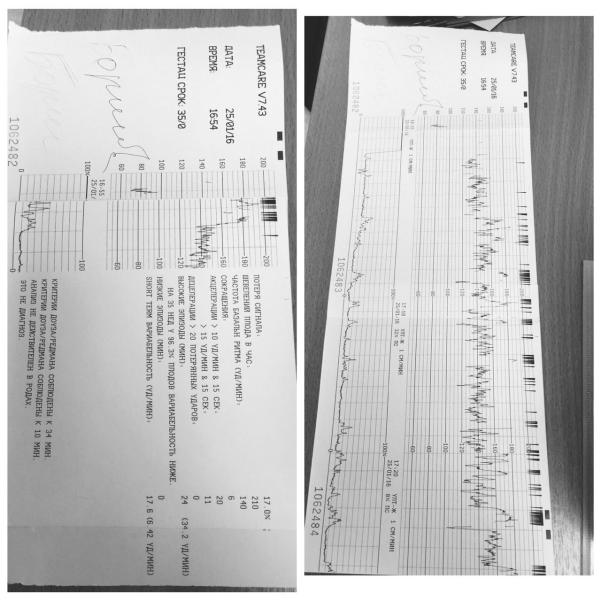 TEAMCARE V7.43
ДАТА: 25/01/16
ВРЕМЯ: 16:54
ГЕСТАЦ СРОК: 35/0
1062482
200
180
160
140
120
100
80
60
100%
16-55
25/01/
0
200
180
160
140
120
100
80
60
100
0
ПОТЕРЯ СИГНАЛА: 17.0%
ШЕВЕЛЕНИИ ПЛОДА В ЧАС: 210
ЧАСТОТА БАЗАЛЬН РИТМА (УД/МИН): 140
СОКРАЩЕНИЯ: 6
АКЦЕЛЕРАЦИИ > 10 УД/МИН & 15 СЕК: 20
> 15 УД/МИН & 15 СЕК: 11
ДЕЦЕЛЕРАЦИИ > 20 ПОТЕРЯННЫХ УДАРОВ: 0
ВЫСОКИЕ ЭПИЗОДЫ (МИН): 24 (34.2 УД/МИН)
НА 35 НЕД У 96.3% ПЛОДОВ ВАРИАБЕЛЬНОСТЬ НИЖЕ.
НИЗКИЕ ЭПИЗОДЫ (МИН): 0
SHORT TERM ВАРИАБЕЛЬНОСТЬ (УД/МИН): 17.6 (6.42 УД/МИН)
КРИТЕРИИ ДОУЗА/РЕДМАНА СОБЛЮДЕНЫ К 34 МИН.
КРИТЕРИИ ДОУЗА/РЕДМАНА СОБЛЮДЕНЫ К 10 МИН.
АНАЛИЗ НЕ ДЕЙСТВИТЕЛЕН В РОДАХ.
ЭТО НЕ ДИАГНОЗ.
TEAMCARE V7.43
ДАТА: 25/01/16
ВРЕМЯ: 16:54
ГЕСТАЦ СРОК: 35/0
1062482
1 СМ/МИН
1062483
17-10 УЛТ-Ж 1 СМ/МИН
25/01/16
17-20 УЛТ-Ж 1 СМ/МИН
25/01/16
1062484